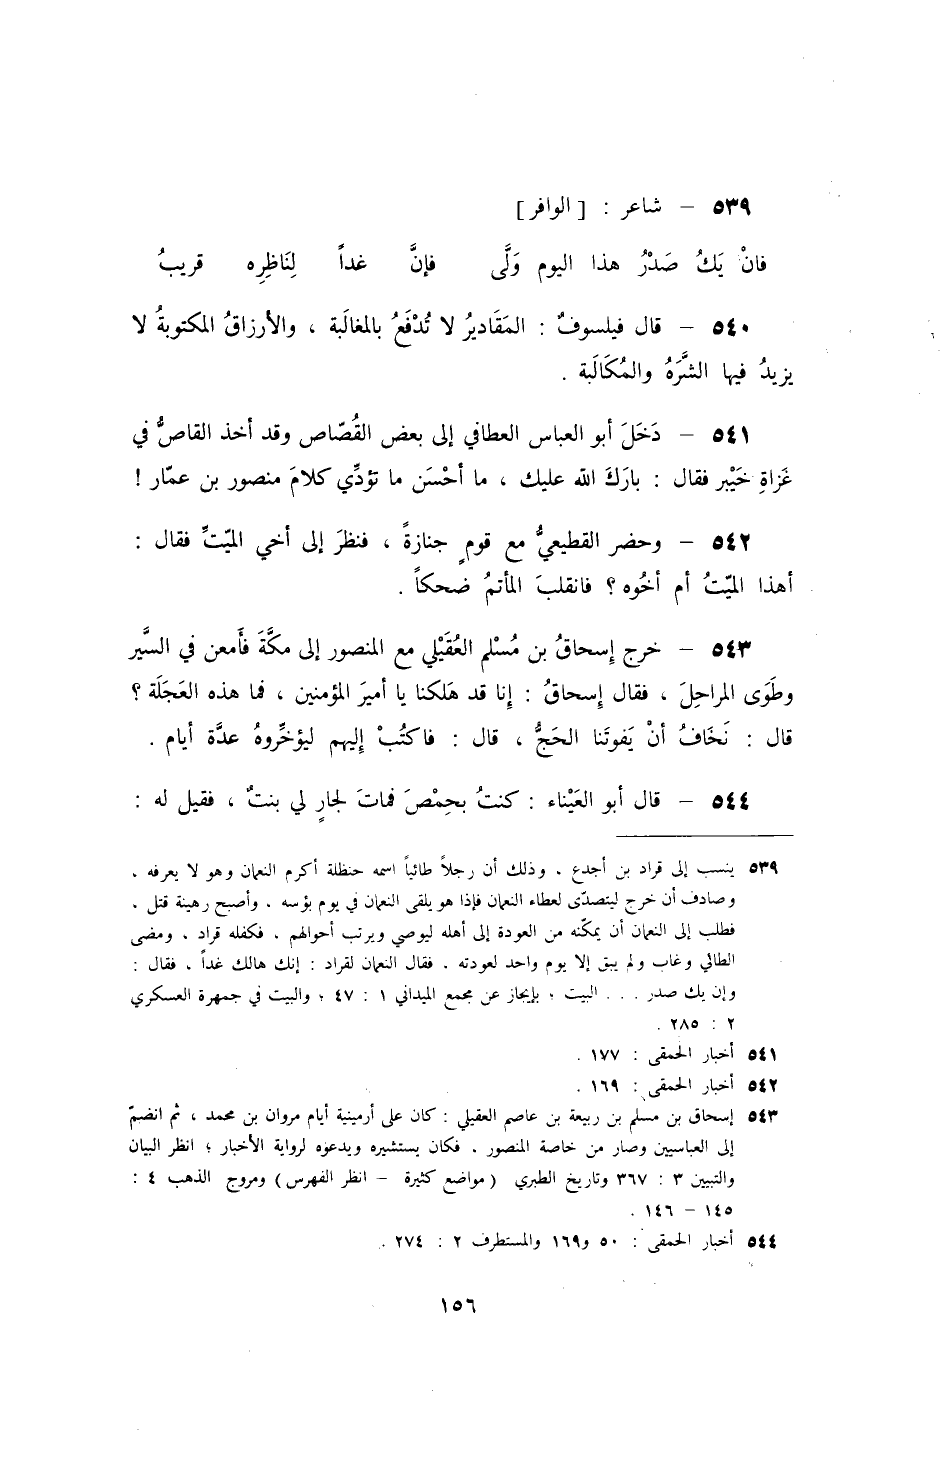 ٥٣٩ – شاعر : [ الوافر ]
فانْ يَكُ صَدْرُ هذا اليوم وَلَّى فإنَّ غداً لِنَاظِرِه قريبُ
٥٤٠ – قال فيلسوفٌ : المَقَاديرُ لا تُدْفَعُ بالمغالَبة ، والأرزاقُ المكتوبةُ لا
يزيدُ فيها الشَّرَهُ والمُكَالَبة .
٥٤١ – دَخَلَ أبو العباس العطافي إلى بعض القُصّاص وقد أخذ القاصُّ في
غَزاةِ خَيْبر فقال : بارَكَ الله عليك ، ما أحْسَن ما تؤدِّي كلامَ منصور بن عمّار !
٥٤٢ – وحضر القطيعيُّ مع قومٍ جنازةً ، فنظرَ إلى أخي الميّتِّ فقال :
أهذا الميّتُ أم أخُوه ؟ فانقلبَ المأتمُ ضحكاً .
٥٤٣ – خرج إسحاقُ بن مُسْلم العُقَيْلي مع المنصور إلى مكَّةَ فأَمعن في السَّير
وطَوَى المراحِلَ ، فقال إسحاقُ : إنا قد هَلكنا يا أميرَ المؤمنين ، فما هذه العَجَلَة ؟
قال : نَخَافُ أنْ يَفوتَنا الحَجُّ ، قال : فاكتُبْ إليهم ليؤخِّروهُ عدَّة أيام .
٥٤٤ – قال أبو العَيْناء : كنتُ بحِمْصَ فماتَ لجارٍ لي بنتٌ ، فقيل له :
٥٣٩ ينسب إلى قراد بن أجدع . وذلك أن رجلاً طائياً اسمه حنظلة أكرم النعمان وهو لا يعرفه .
وصادف أن خرج ليتصدّى لعطاء النعمان فإذا هو يلقى النعمان في يوم بؤسه . وأصبح رهينة قتل .
فطلب إلى النعمان أن يمكّنه من العودة إلى أهله ليوصي ويرتب أحوالهم . فكفله قراد . ومضى
الطائي وغاب ولم يبق إلا يوم واحد لعودته . فقال النعمان لقراد : إنك هالك غداً . فقال :
وإن يك صدر . . . البيت ؛ بإيجاز عن مجمع الميداني ١ : ٤٧ ؛ والبيت في جمهرة العسكري
٢ : ٢٨٥ .
٥٤١ أخبار الحمقى : ١٧٧ .
٥٤٢ أخبار الحمقى : ١٦٩ .
٥٤٣ إسحاق بن مسلم بن ربيعة بن عاصم العقيلي : كان على أرمينية أيام مروان بن محمد ، ثم انضمّ
إلى العباسيين وصار من خاصة المنصور . فكان يستشيره ويدعوه لرواية الأخبار ؛ انظر البيان
والتبيين ٣ : ٣٦٧ وتاريخ الطبري ( مواضع كثيرة – انظر الفهرس ) ومروج الذهب ٤ :
١٤٥ – ١٤٦ .
٥٤٤ أخبار الحمقى : ٥٠ و١٦٩ والمستطرف ٢ : ٢٧٤ .
١٥٦